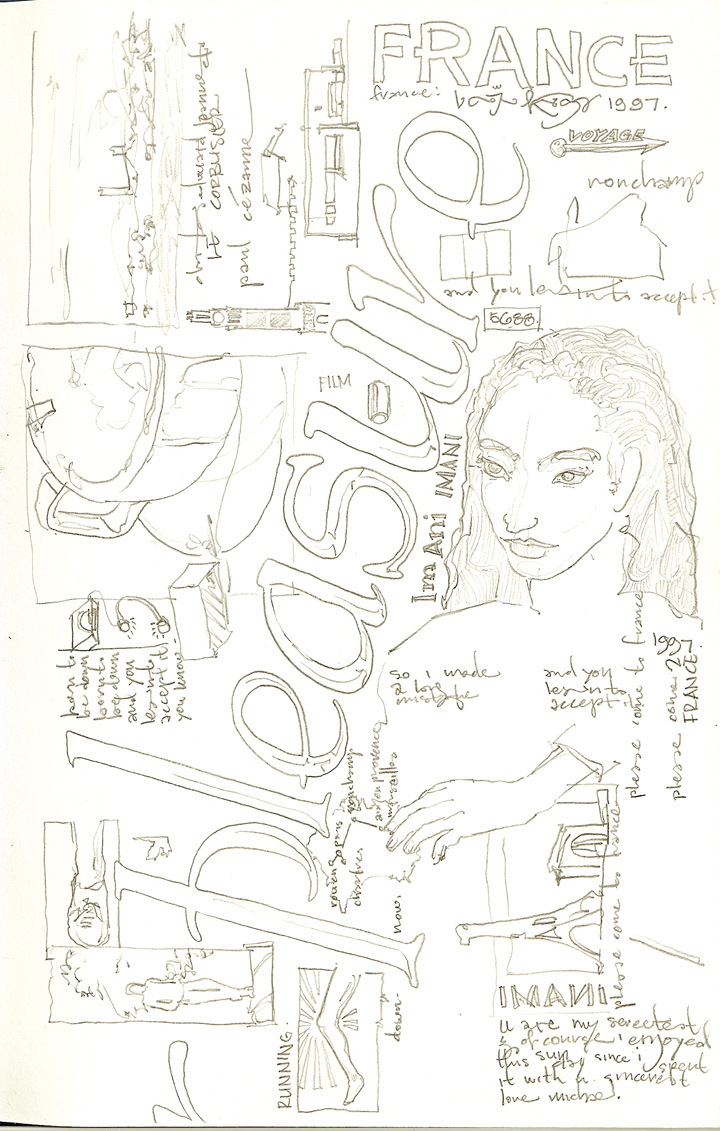 FRANCE
france:
1997.
VOYAGE
and you learn to accept it
5688.
LE CORBUSIER
paul cézanne
FILM
Pleasure
Im Ani IMANI
born to
be down
born to
be down
and you
learn to
accept it
you know-
so i made
and you
learn to
accept it
please come to france
1997
please come 2
FRANCE.
ronchamp
aix en provence
marseilles
rouen
paris
chartres
now.
down-
please come to france
RUNNING.
IMANI-
u are my sweetest
& of course i enjoyed
this sun day since i spent
it with u. sincerest
love